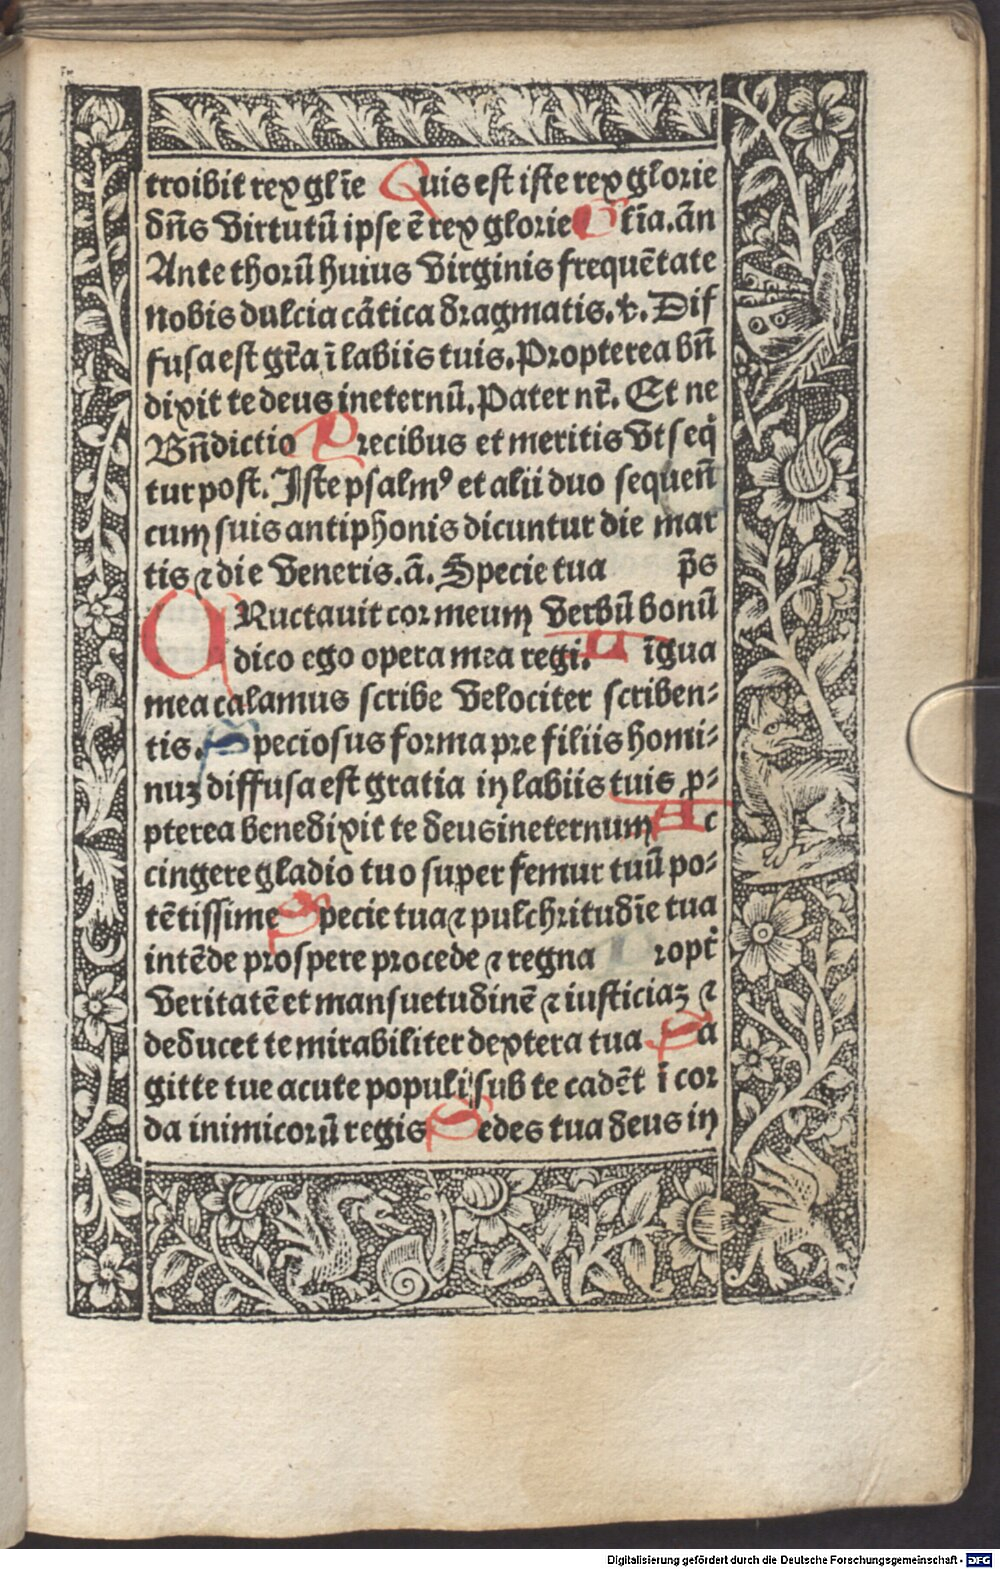 troibit rex gl̄ie Quis est iste rex glorie
dn̄s virtutū ipse ē rex glorie Gt̄ia. an̄
Ante thorū huius virginis frequētate
nobis dulcia cātica dragmatis. ꝟ. Dif
fusa est gr̄a ī labiis tuis. Propterea bn̄
dixit te deus ineternū. Pater nr̄. Et ne
Bn̄dictio Precibus et meritis vt seq̄
tur post. Iste psalmꝰ et alii duo sequen̄
cum suis antiphonis dicuntur die mar
tis ⁊ die veneris. ā. Specie tua p̄s
Ructauit cor meum verbū bonū
dico ego opera mea regi. Līgua
mea calamus scribe velociter scriben⸗
tis. Speciosus forma pre filiis homi⸗
nuꝫ diffusa est gratia in labiis tuis p⸗
pterea benedixit te deus ineternum Ac
cingere gladio tuo super femur tuū po⸗
tētissime Specie tua ⁊ pulchritudīe tua
intēde prospere procede ⁊ regna Proptꝰ
veritatē et mansuetudinē ⁊ iusticiaꝫ ⁊
deducet te mirabiliter dextera tua Sa
gitte tue acute populi sub te cadēt ī cor
da inimicorū regis Sedes tua deus in
Digitalisierung gefördert durch die Deutsche Forschungsgemeinschaft - DFG